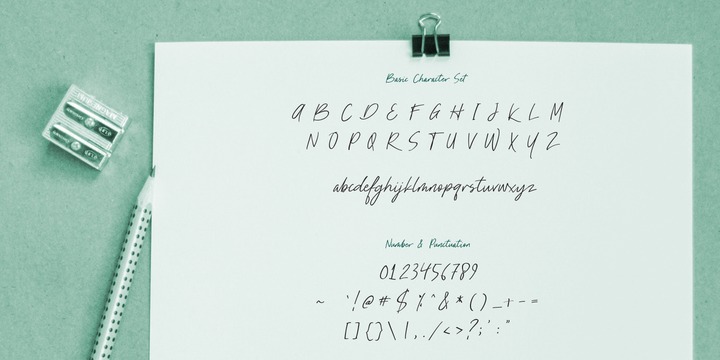 Basic Character Set
A B C D E F G H I J K L M
N O P Q R S T U V W X Y Z
abcdefghijklmnopqrstuvwxyz
Number & Punctuation
0123456789
~ `!@#$%^&*()_+-=
[]{}\|,./<>?;':"